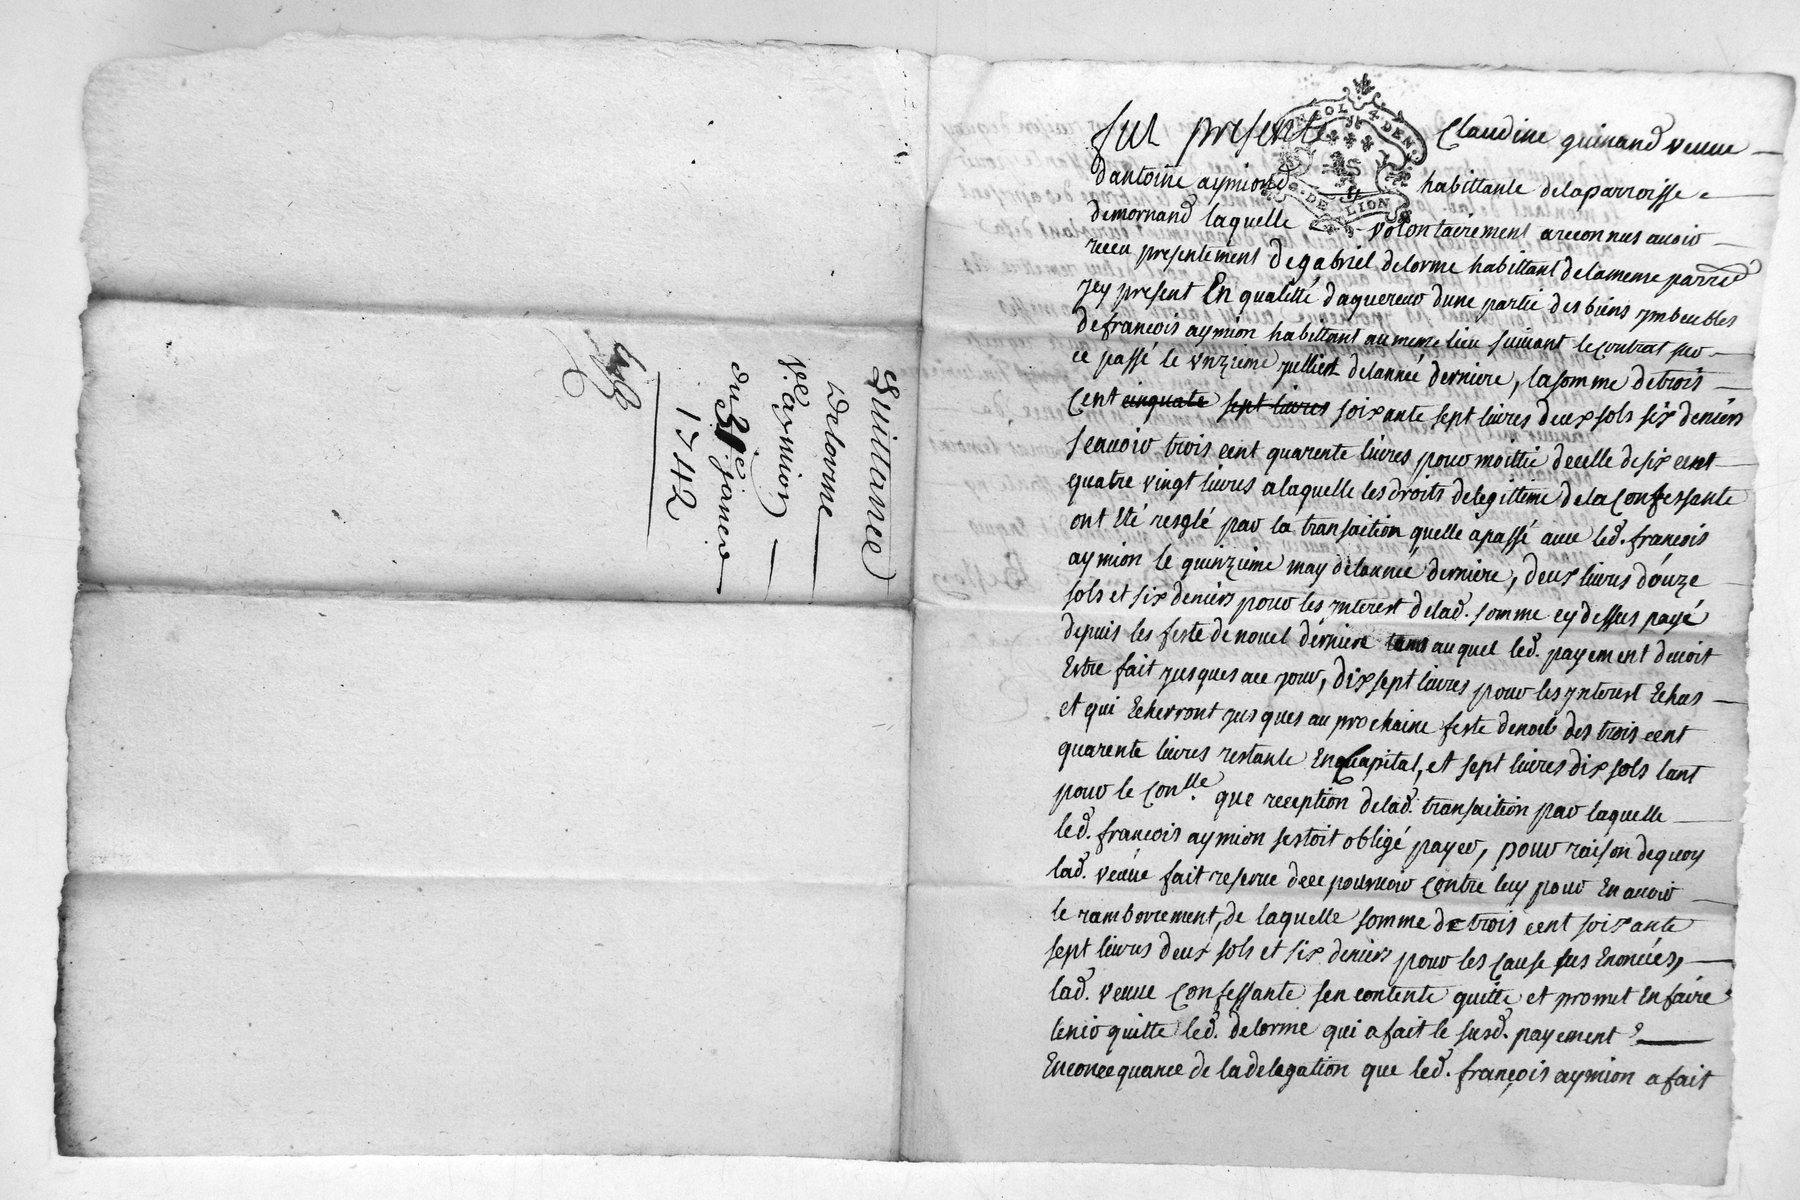 Quittance
Delorme
v.e aymion
du 31e janvier
1742
GÑAL 4 DEN.
G. DE LION
fut presente Claudine guinand veuve
dantoine aymiond habittante delaparroisse
demornand laquelle volontairement areconnus avoir
receu presentement degabriel delorme habittant delameme parr.e
jcy present En qualitté daquereur dune partie des biens ymbeubles
defrancois aymion habittant aumeme lieu suivant lecontrat sur
ce passé le unzieme juillet delannée derniere, lasomme detrois
Cent cinquate sept livres soixante sept livres deux sols six deniers
scavoir trois cent quarente livres pour moittié decelle desix cent
quatre vingt livres alaquelle les droits delegittime delaConfessante
ont Eté resglé par la transaition quelle apassé avec led. francois
aymion le quinzieme may delannée derniere, deux livres douze
sols et six deniers pour les ynterest delad. somme cy dessus payé
depuis les feste denouel derniere tems auquel led. payement devoit
Estre fait jusques ace jour, dix sept livres pour les ynterest Echus
et qui Echerront jusques au prochaine feste denoel des trois cent
quarente livres restante En Capital, et sept livres dix sols tant
pour le Con.lle que reception delad. transaition par laquelle
led. francois aymion sestoit obligé payer, pour raison dequoy
lad. veuve fait reserve dece pourvoir Contre luy pour En avoir
le ramborement, de laquelle somme de trois cent soixante
sept livres deux sols et six deniers pour les Cause sus Enoncées,
lad. veuve Confessante sen contente quitte et promet En faire
tenir quitte led. delorme qui a fait le susd. payement
Enconcequance de la delegation que led. françois aymion a fait